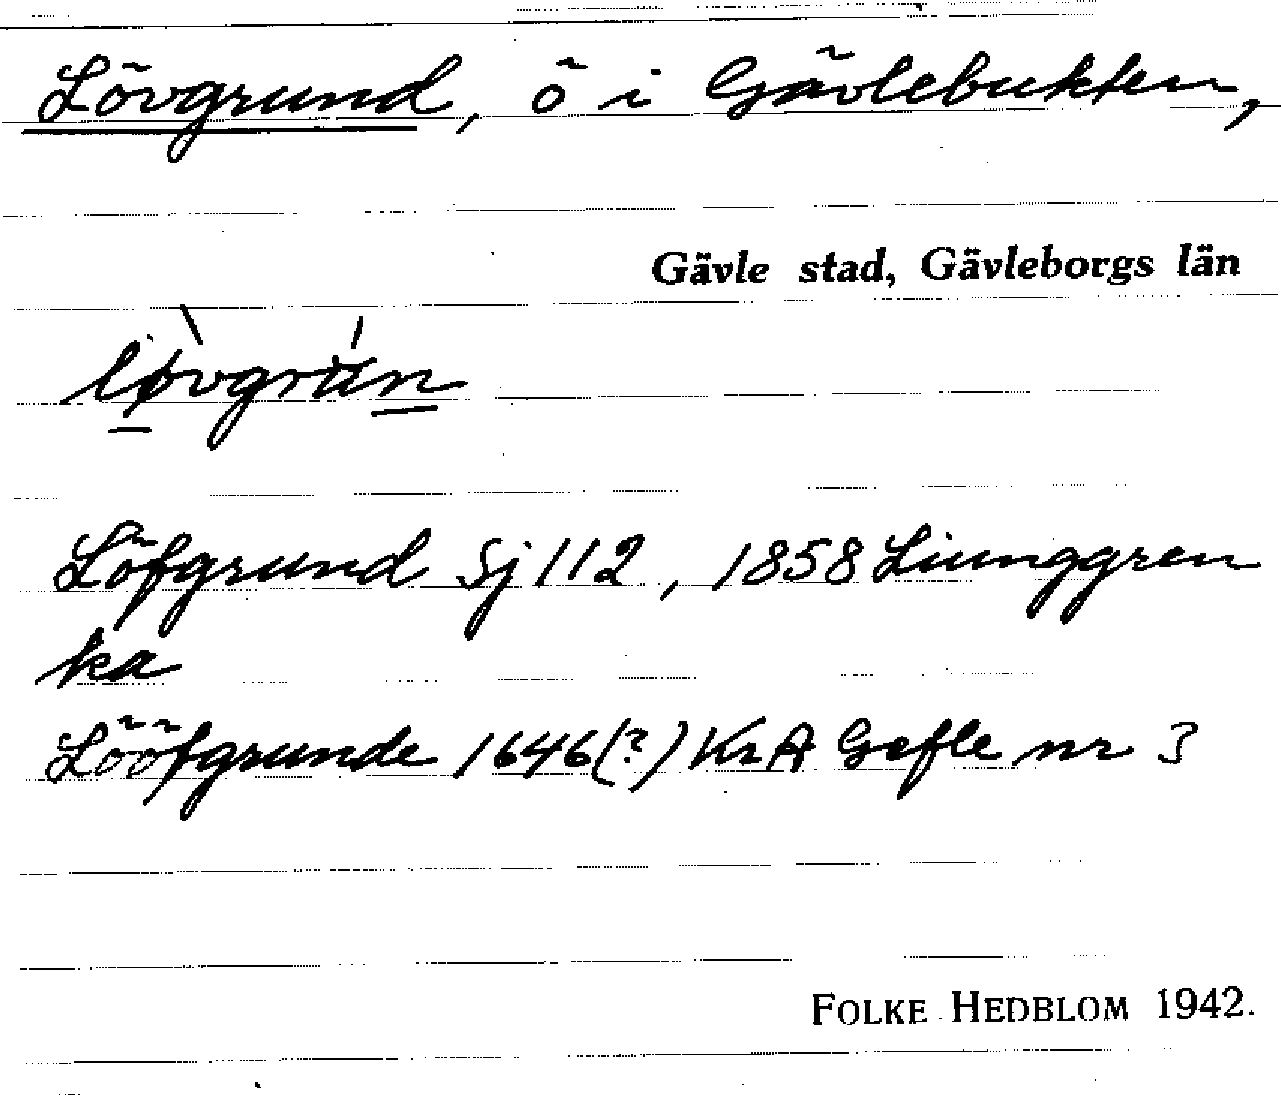 Lövgrund, ö i Gävlebukten,
Gävle stad, Gävleborgs län
lø̀vgrún
Löfgrund Sj 112, 1858 Liunggren
ka
Lööfgrunde 1646(?) KrA Gefle nr 3
FOLKE HEDBLOM 1942.